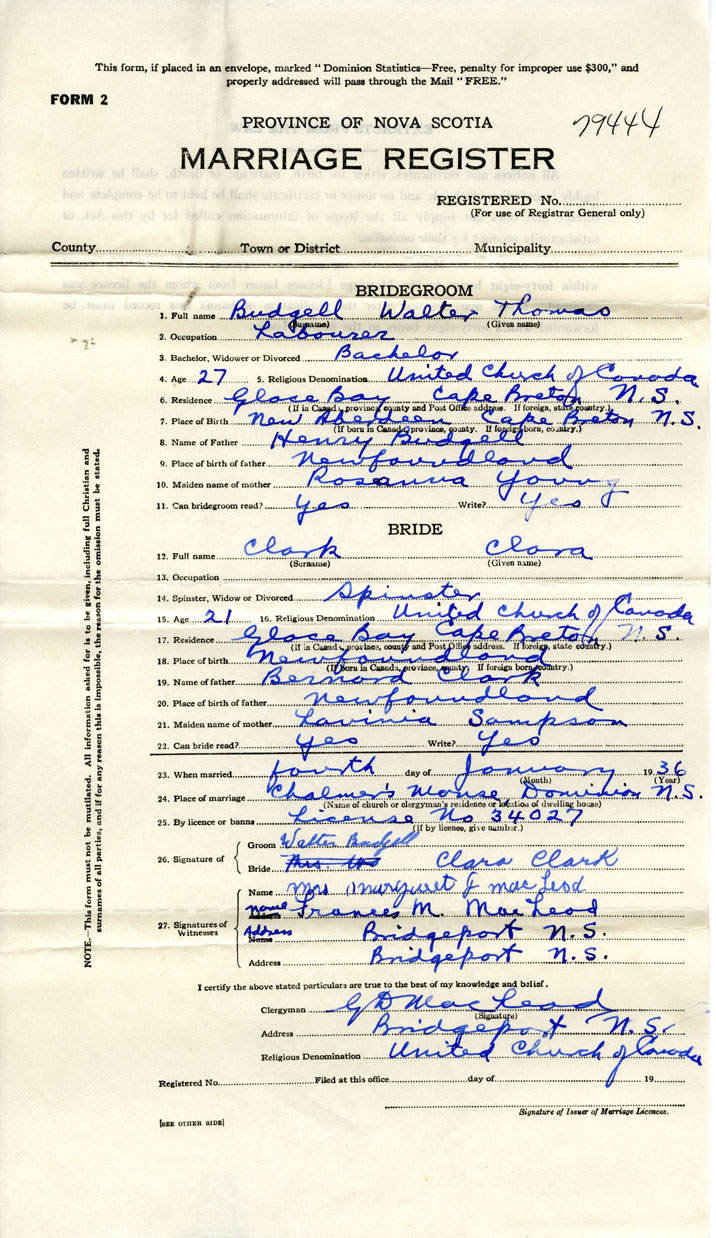 This form, if placed in an envelope, marked "Dominion Statistics—Free, penalty for improper use $300," and
properly addressed will pass through the Mail "FREE."
FORM 2
PROVINCE OF NOVA SCOTIA
79444
MARRIAGE REGISTER
REGISTERED No.
(For use of Registrar General only)
County Town or District Municipality
BRIDEGROOM
1. Full name Budgell Walter Thomas
(Surname) (Given name)
2. Occupation Labourer
3. Bachelor, Widower or Divorced Bachelor
4. Age 27 5. Religious Denomination United Church of Canada
6. Residence Glace Bay Cape Breton N.S.
(If in Canada, province, county and Post Office address. If foreign, state country.)
7. Place of Birth New Aberdeen Cape Breton N.S.
(If born in Canada, province, county. If foreign born, country.)
8. Name of Father Henry Budgell
9. Place of birth of father Newfoundland
10. Maiden name of mother Rosanna Young
11. Can bridegroom read? Yes Write? Yes
BRIDE
12. Full name Clark Clara
(Surname) (Given name)
13. Occupation
14. Spinster, Widow or Divorced Spinster
15. Age 21 16. Religious Denomination United Church of Canada
17. Residence Glace Bay Cape Breton N.S.
(If in Canada, province, county and Post Office address. If foreign, state country.)
18. Place of birth Newfoundland
(If born in Canada, province, county. If foreign born, country.)
19. Name of father Bernard Clark
20. Place of birth of father Newfoundland
21. Maiden name of mother Lavinia Sampson
22. Can bride read? Yes Write? Yes
23. When married fourth day of January 1936
(Month) (Year)
24. Place of marriage Chalmer's Manse, Dominion N.S.
(Name of church or clergyman's residence or location of dwelling house)
25. By licence or banns License No 34027
(If by licence, give number.)
26. Signature of
Groom Walter Budgell
Bride Mrs. Clara Clark
27. Signatures of Witnesses
Name Mrs Margaret J MacLeod
Name Frances M. MacLeod
Address Name Bridgeport N.S.
Address Bridgeport N.S.
I certify the above stated particulars are true to the best of my knowledge and belief.
Clergyman G D MacLeod
(Signature)
Address Bridgeport N.S.
Religious Denomination United Church of Canada
Registered No. Filed at this office day of 19
Signature of Issuer of Marriage Licences.
[SEE OTHER SIDE]
NOTE.—This form must not be mutilated. All information asked for is to be given, including full Christian and
surnames of all parties, and if for any reason this is impossible, the reason for the omission must be stated.